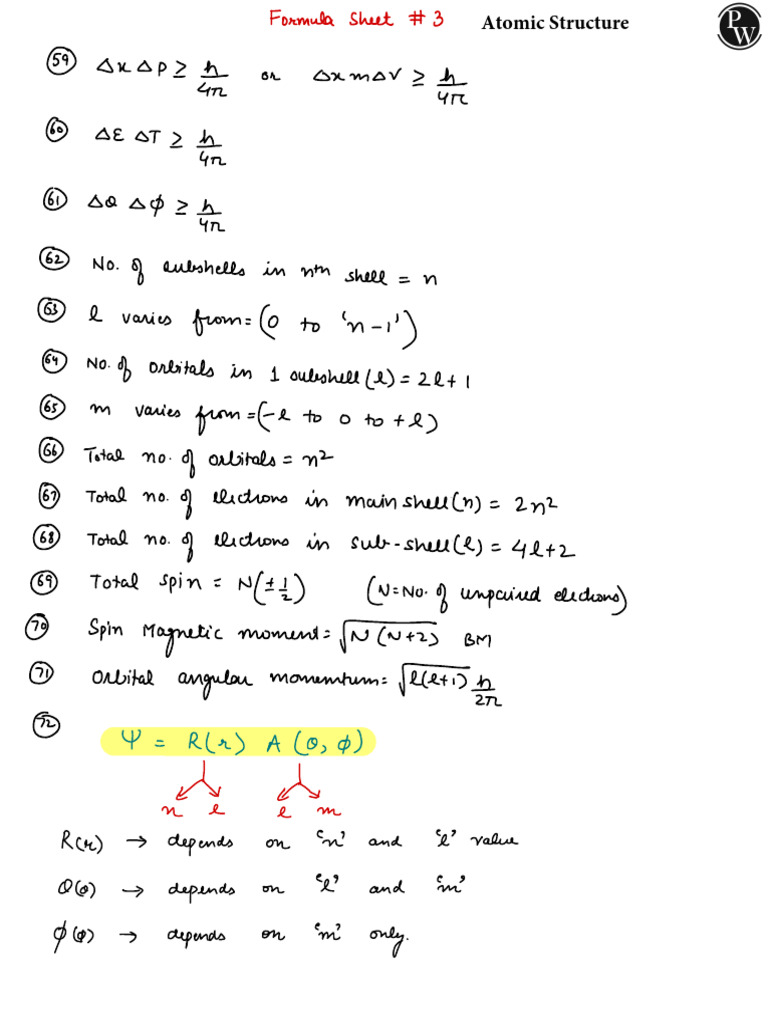 Formula Sheet # 3 Atomic Structure PW
59 Δx ΔP ≥ h/4π or Δx mΔV ≥ h/4π
60 ΔE ΔT ≥ h/4π
61 Δθ Δϕ ≥ h/4π
62 No. of subshells in nth shell = n
63 l varies from = (0 to 'n-1')
64 No. of orbitals in 1 subshell (l) = 2l+1
65 m varies from = (-l to 0 to +l)
66 Total no. of orbitals = n²
67 Total no. of electrons in main shell (n) = 2n²
68 Total no. of electrons in sub-shell (l) = 4l+2
69 Total spin = N(±1/2) (N = No. of unpaired electrons)
70 Spin Magnetic moment = √N(N+2) BM
71 Orbital angular momentum = √l(l+1) h/2π
72
Ψ = R(r) A(θ, ϕ)
n l l m
R(r) → depends on 'n' and 'l' value
θ(θ) → depends on 'l' and 'm'
ϕ(ϕ) → depends on 'm' only.